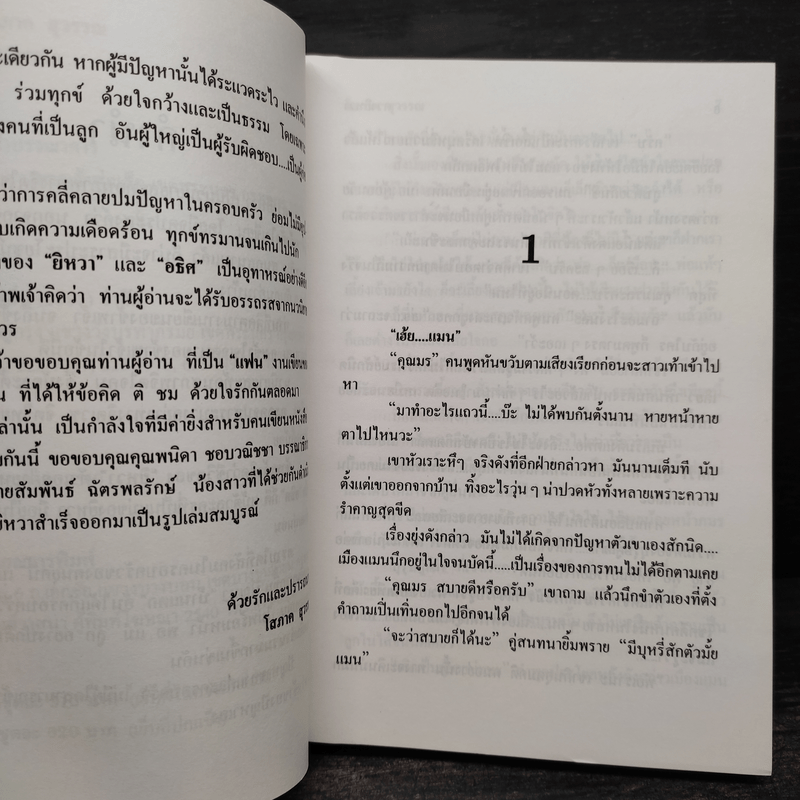 ะเดียวกัน หากผู้มีปัญหานั้นได้ระแวดระไว และคำนึง
ร่วมทุกข์ ด้วยใจกว้างและเป็นธรรม โดยเฉพาะ
งคนที่เป็นลูก อันผู้ใหญ่เป็นผู้รับผิดชอบ....เป็นผู้
ว่าการคลี่คลายปมปัญหาในครอบครัว ย่อมไม่มี
บเกิดความเดือดร้อน ทุกข์ทรมานจนเกินไปนัก
ของ “ยิหวา” และ “อธิศ” เป็นอุทาหรณ์อย่างดี
าพเจ้าคิดว่า ท่านผู้อ่านจะได้รับอรรถรสจาก
วร
้าขอขอบคุณท่านผู้อ่าน ที่เป็น “แฟน” งานเขียน
น ที่ได้ให้ข้อคิด ติ ชม ด้วยใจรักกันตลอดมา
ล่านั้น เป็นกำลังใจที่มีค่ายิ่งสำหรับคนเขียนหนังสือ
กันนี้ ขอขอบคุณคุณพนิดา ชอบวณิชชา
ายสัมพันธ์ ฉัตรพลรักษ์ น้องสาวที่ได้ช่วยกัน
ยิหวาสำเร็จออกมาเป็นรูปเล่มสมบูรณ์
ด้วยรักและปรารถ
โสภาค
1
“เฮ้ย....แมน”
“คุณมร” คนพูดหันขวับตามเสียงเรียกก่อนจะสาวเท้าเข้าไป
หา
“มาทำอะไรแถวนี้....บ๊ะ ไม่ได้พบกันตั้งนาน หายหน้าหาย
ตาไปไหนวะ”
เขาหัวเราะหึๆ จริงดังที่อีกฝ่ายกล่าวหา มันนานเต็มที นับ
ตั้งแต่เขาออกจากบ้าน ทิ้งอะไรวุ่น ๆ น่าปวดหัวทั้งหลายเพราะความ
รำคาญสุดขีด
เรื่องยุ่งดังกล่าว มันไม่ได้เกิดจากปัญหาตัวเขาเองสักนิด....
เมืองแมนนึกอยู่ในใจจนบัดนี้.....เป็นเรื่องของการทนไม่ได้อีกตามเคย
“คุณมร สบายดีหรือครับ” เขาถาม แล้วนึกขำตัวเองที่ตั้ง
คำถามเปิ่นเทิ่นออกไปอีกจนได้
“จะว่าสบายก็ได้นะ” คู่สนทนายิ้มพราย “มีบุหรี่สักตัวมั้ย
แมน”